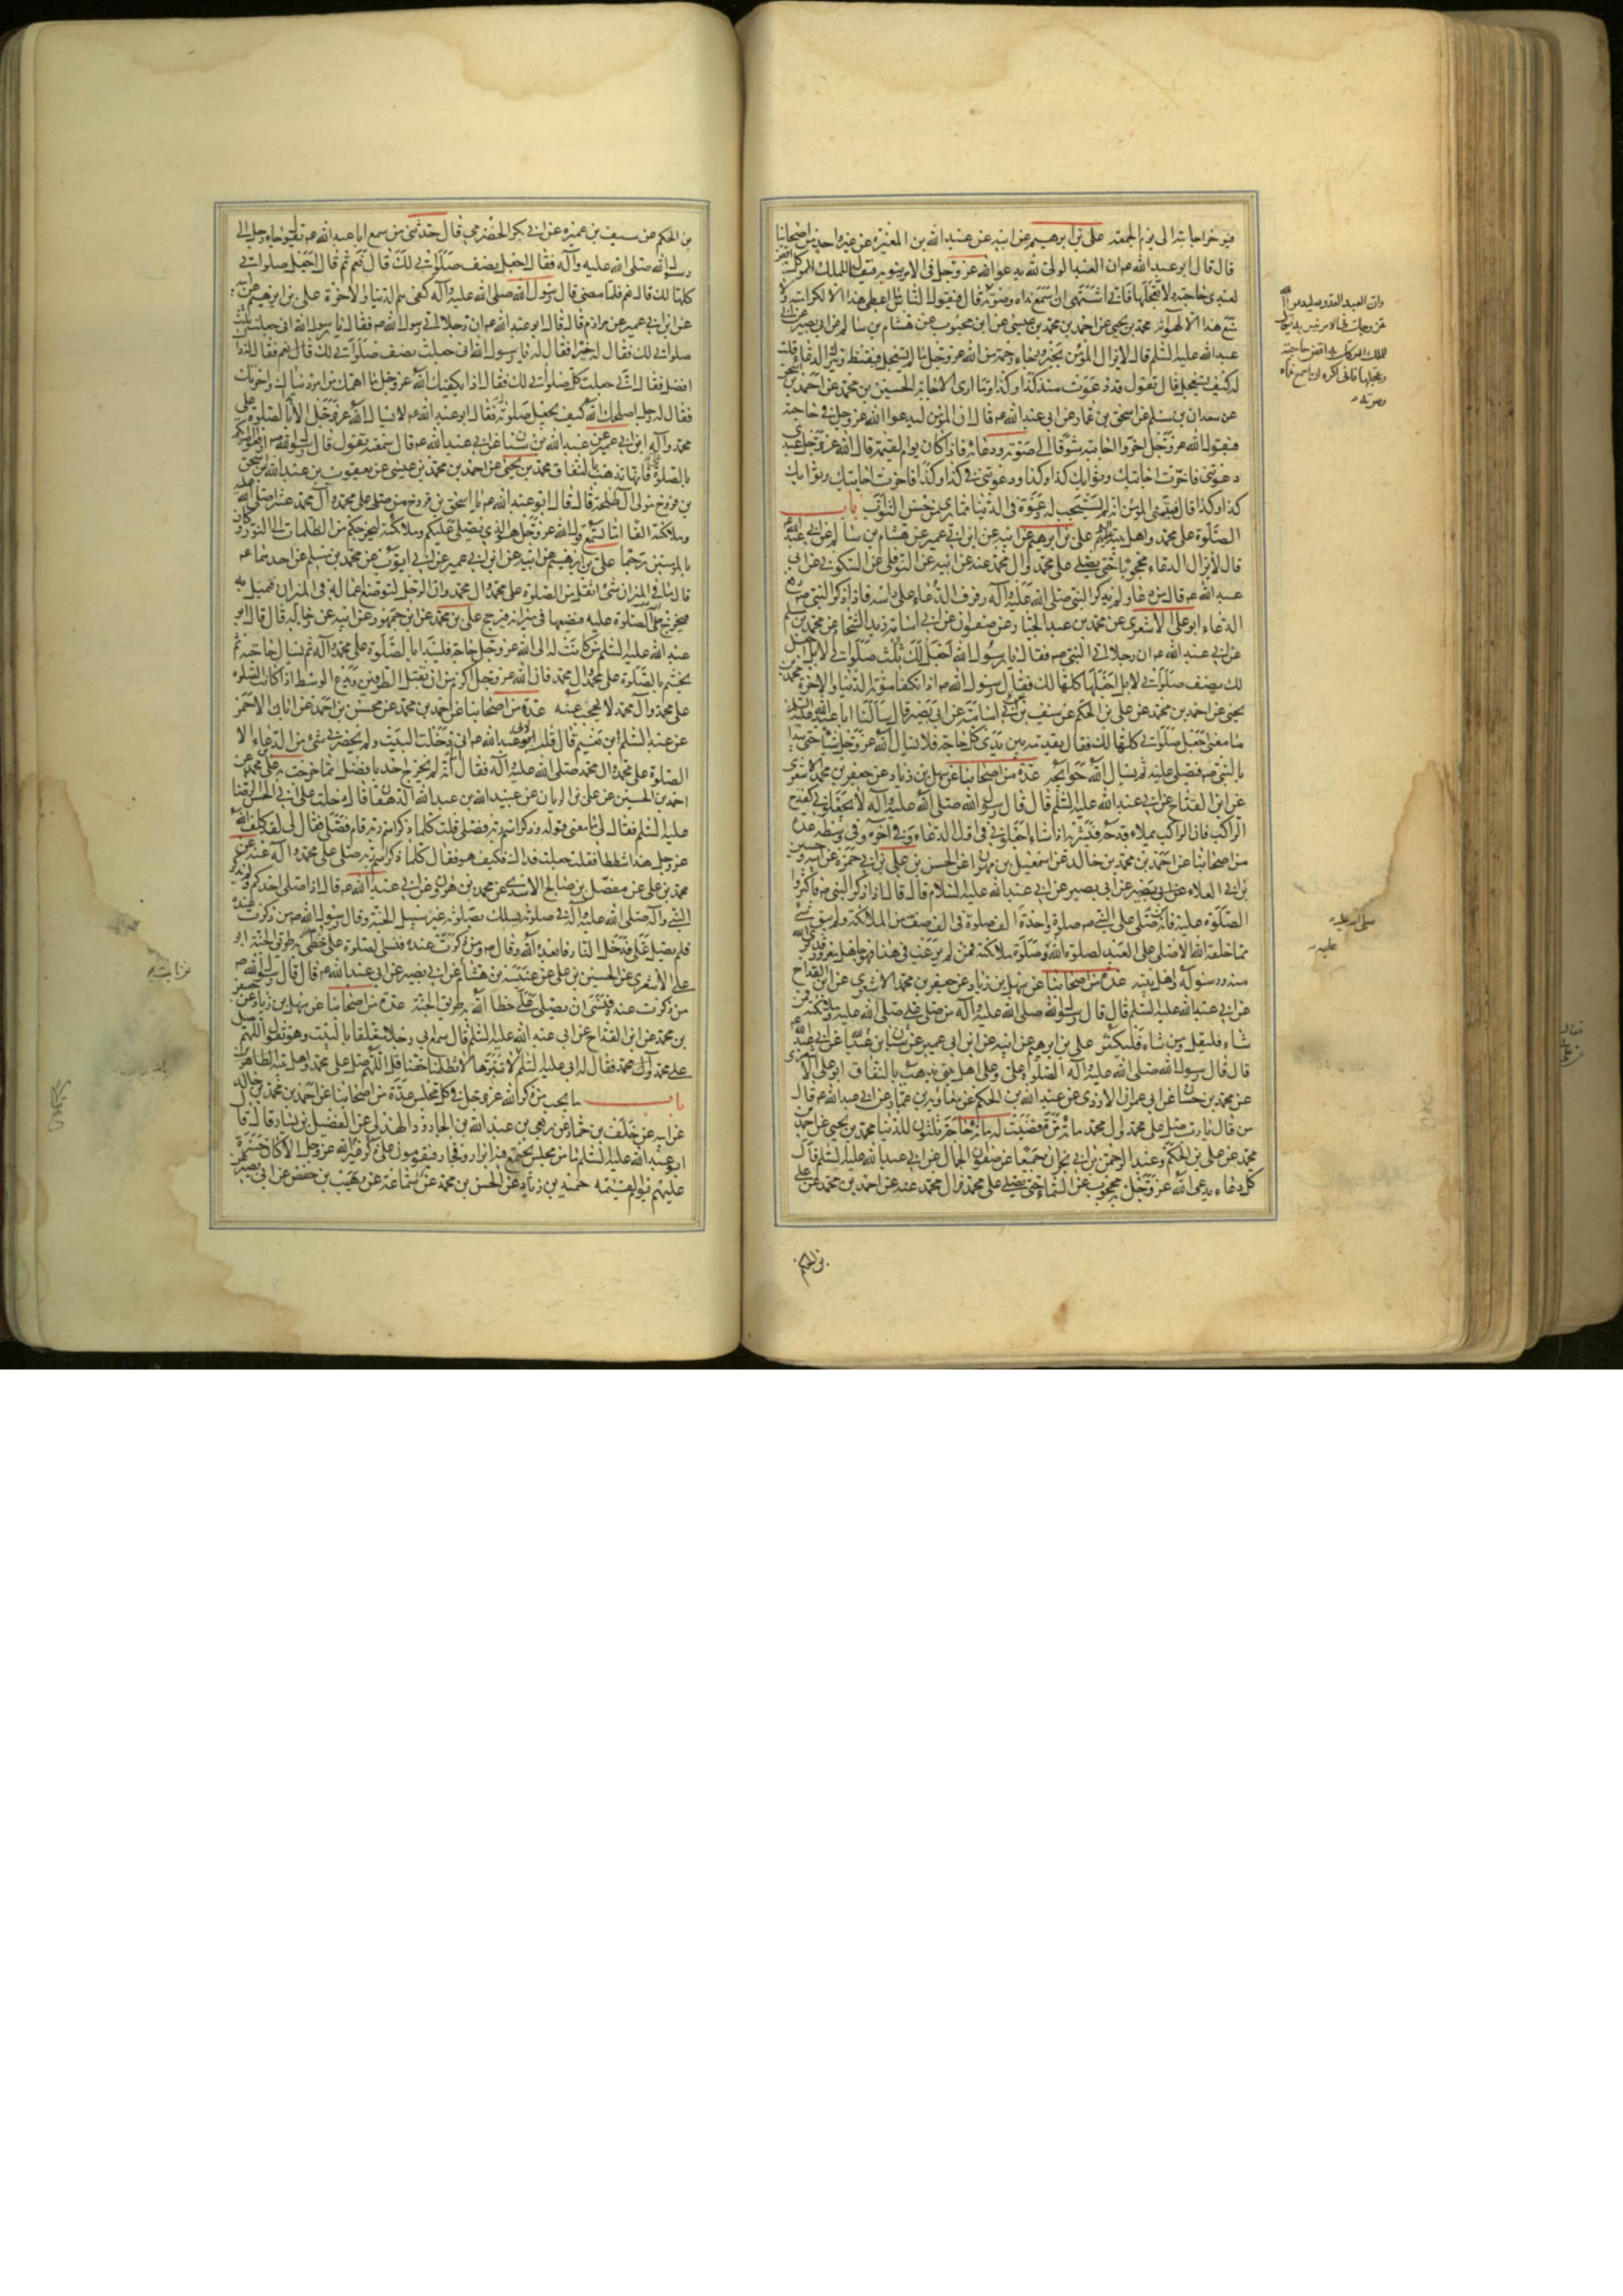 فيؤخر اجابته الى يوم الجمعة علي بن ابرهيم عن ابيه عن عبد الله بن المغيرة عن غير واحد من اصحابنا
قال قال ابو عبد الله ع ان العبد الولي لله يدعو الله عز وجل في الامر ينوبه فيقول للملك الموكل به اقض
لعبدي حاجته ولا تعجلها فاني اشتهي ان اسمع نداه وصوته قال فيقول الناس ما اعطي هذا الا لكرامته ولا
منع هذا الا لهوانه محمد بن يحيى عن احمد بن محمد بن عيسى عن ابن محبوب عن هشام بن سالم عن ابي بصير عن ابي
عبد الله عليه السلم قال لا يزال المؤمن بخير ورجاء رحمة من الله عز وجل ما لم يستعجل فيقنط ويترك الدعاء قلت
له كيف يستعجل قال يقول قد دعوت منذ كذا وكذا وما ارى الاجابة الحسين بن محمد عن احمد بن اسحق
عن سعدان بن مسلم عن اسحق بن عمار عن ابي عبد الله ع قال ان المؤمن ليدعوا الله عز وجل في حاجته
فيقول الله عز وجل اخروا اجابته شوقا الى صوته ودعائه فاذا كان يوم القيمة قال الله عز وجل عبدي
دعوتني فاخرت اجابتك وثوابك كذا وكذا ودعوتني في كذا وكذا فاخرت اجابتك وثوابك
كذا وكذا قال فيتمنى المؤمن انه لم يستجب له دعوة في الدنيا مما يرى من حسن الثواب باب
الصلوة على محمد واهل بيته علي بن ابرهيم عن ابيه عن ابن ابي عمير عن هشام بن سالم عن ابي عبد الله
قال لا يزال الدعاء محجوبا حتى يصلي على محمد وال محمد عنه عن ابيه عن النوفلي عن السكوني عن ابي
عبد الله ع قال من دعا ولم يذكر النبي صلى الله عليه وآله رفرف الدعاء على راسه فاذا ذكر النبي ص رفع
الدعاء ابو علي الاشعري عن محمد بن عبد الجبار عن صفوان عن ابي اسامة زيد الشحام عن محمد بن مسلم
عن ابي عبد الله ع ان رجلا اتى النبي ص فقال يا رسول الله اجعل لك ثلث صلواتي لا بل اجعل
لك نصف صلواتي لا بل اجعلها كلها لك فقال رسول الله ص اذا تكفا مؤنة الدنيا والاخرة محمد بن
يحيى عن احمد بن محمد عن علي بن الحكم عن سيف عن ابي اسامة عن ابي بصير قال سالنا ابا عبد الله عليه السلم
ما معنى جعل صلواتي كلها لك فقال يقدمه بين يدي كل حاجة فلا يسال الله عز وجل شيئا حتى يبدا
بالنبي ص فيصلي عليه ثم يسال الله حوائجه عدة من اصحابنا عن سهل بن زياد عن جعفر بن محمد الاشعري
عن ابن القداح عن ابي عبد الله عليه السلم قال قال رسول الله صلى الله عليه وآله لا تجعلوني كقدح
الراكب فان الراكب يملاء قدحه فيشربه اذا شاء اجعلوني في اول الدعاء وفي اخره وفي وسطه عدة
من اصحابنا عن احمد بن محمد بن خالد عن اسمعيل بن مهران عن الحسن بن علي بن ابي حمزة عن ابيه وحسين
بن ابي العلاء عن ابي بصير عن ابي عبد الله عليه السلام قال قال اذا ذكر النبي ص فاكثروا
الصلوة عليه فانه من صلى على النبي ص صلوة واحدة الف صلوة في الف صف من الملائكة ولم يبق شئ
مما خلقه الله الا صلى على العبد لصلوة الله وصلوة ملائكته فمن لم يرغب في هذا فهو جاهل مغرور قد برئ الله
منه ورسوله واهل بيته عدة من اصحابنا عن سهل بن زياد عن جعفر بن محمد الاشعري عن ابن القداح
عن ابي عبد الله عليه السلم قال قال رسول الله صلى الله عليه وآله من صلى علي صلى الله عليه وملائكته فمن
شاء فليقل ومن شاء فليكثر علي بن ابرهيم عن ابيه عن ابن ابي عمير عن عبد الله بن سنان عن ابي عبد الله
قال قال رسول الله صلى الله عليه وآله الصلوة علي وعلى اهل بيتي تذهب بالنفاق ابو علي الاشعري
عن محمد بن حسان عن ابي عمران الازدي عن عبد الله بن الحكم عن معاوية بن عمار عن ابي عبد الله ع قال
من قال يا رب صل على محمد وال محمد مائة مرة قضيت له مائة حاجة ثلثون للدنيا محمد بن يحيى عن احمد بن
محمد عن علي بن الحكم وعبد الرحمن بن ابي نجران جميعا عن صفوان الجمال عن ابي عبد الله عليه السلم قال
كل دعاء يدعى الله عز وجل به محجوب عن السماء حتى يصلي على محمد وال محمد عنه عن احمد بن محمد عن علي
بن الحكم
وان العبد العدو لله ليدعوا الله
عز وجل في الامر ينوبه فيقال
للملك الموكل به اقض حاجته
وعجلها فاني اكره ان اسمع نداه
وصوته
صلى الله عليه
عليه
بن الحكم عن سيف بن عميرة عن ابي بكر الحضرمي قال حدثني من سمع ابا عبد الله ع يقول جاء رجل الى
رسول الله صلى الله عليه وآله فقال اجعل نصف صلواتي لك قال نعم ثم قال اجعل صلواتي
كلها لك قال نعم فلما مضى قال رسول الله صلى الله عليه وآله كفي هم الدنيا والاخرة علي بن ابرهيم عن ابيه
عن ابن ابي عمير عن مرازم قال قال ابو عبد الله ع ان رجلا اتى رسول الله ص فقال يا رسول الله اني جعلت ثلث
صلواتي لك فقال له خيرا فقال له يا رسول الله اني جعلت نصف صلواتي لك قال له ذاك
افضل فقال اني جعلت كل صلواتي لك فقال اذا يكفيك الله عز وجل ما اهمك من امر دنياك واخرتك
فقال له رجل اصلحك الله كيف يجعل صلوته له فقال ابو عبد الله ع لا يسال الله عز وجل الا بدا بالصلوة على
محمد وآله ابن ابي عمير عن عبد الله بن سنان عن ابي عبد الله ع قال سمعته يقول قال رسول الله ص ارفعوا اصواتكم
بالصلوة علي فانها تذهب بالنفاق محمد بن يحيى عن احمد بن محمد بن عيسى عن يعقوب بن عبد الله عن اسحق
بن فروخ مولى ال طلحة قال قال ابو عبد الله ع يا اسحق بن فروخ من صلى على محمد وآل محمد عشرا صلى الله عليه
وملائكته الفا اما تسمع قول الله عز وجل هو الذي يصلي عليكم وملائكته ليخرجكم من الظلمات الى النور وكان
بالمؤمنين رحيما علي بن ابرهيم عن ابيه عن ابن ابي عمير عن ابي ايوب عن محمد بن مسلم عن احدهما ع
قال ما في الميزان شئ اثقل من الصلوة على محمد وال محمد وان الرجل لتوضع اعماله في الميزان فتميل به
فيخرج ص الصلوة عليه فيضعها في ميزانه فيرجح علي بن محمد عن ابن جمهور عن ابيه عن رجاله قال قال ابو
عبد الله عليه السلم من كانت له الى الله عز وجل حاجة فليبدا بالصلوة على محمد وآله ثم يسال حاجته ثم
يختم بالصلوة على محمد وال محمد فان الله عز وجل اكرم من ان يقبل الطرفين ويدع الوسط اذا كانت الصلوة
على محمد وآل محمد لا تحجب عنه عدة من اصحابنا عن احمد بن محمد عن محسن بن احمد عن ابان الاحمر
عن عبد السلم بن نعيم قال قلت لابي عبد الله ع اني دخلت البيت ولم يحضرني شئ من الدعاء الا
الصلوة على محمد وال محمد صلى الله عليه وآله فقال انه لم يخرج احد بافضل مما خرجت به علي بن محمد عن
احمد بن الحسين عن علي بن الريان عن عبيد الله بن عبد الله الدهقان قال دخلت على ابي الحسن الرضا
عليه السلم فقال لي ما معنى قوله وذكر اسم ربه فصلى قلت كلما ذكر اسم ربه قام فصلى فقال لي لقد كلف الله
عز وجل هذا شططا فقلت جعلت فداك فكيف هو فقال كلما ذكر اسم ربه صلى على محمد وآله عنه عن
محمد بن علي عن مفضل بن صالح الاسدي عن محمد بن هرون عن ابي عبد الله ع قال اذا صلى احدكم ولم يذكر
النبي وآله صلى الله عليه وآله في صلوته يسلك بصلوته غير سبيل الجنة وقال رسول الله ص من ذكرت عنده
فلم يصل علي فدخل النار فابعده الله وقال ص ومن ذكرت عنده فنسي الصلوة علي خطئ به طريق الجنة ابو
علي الاشعري عن الحسين بن علي عن عبيس بن هشام عن ابي بصير عن ابي عبد الله ع قال قال رسول الله ص
من ذكرت عنده فنسي ان يصلي علي خطا الله به طريق الجنة عدة من اصحابنا عن سهل بن زياد عن جعفر
بن محمد عن ابن القداح عن ابي عبد الله عليه السلم قال سمع ابي رجلا متعلقا بالبيت وهو يقول اللهم صل
على محمد فقال له ابي عليه السلم لا تبترها لا تظلمنا حقنا قل اللهم صل على محمد واهل بيته
باب ما يجب من ذكر الله عز وجل في كل مجلس عدة من اصحابنا عن احمد بن محمد بن خالد
عن ابيه عن خلف بن حماد عن ربعي بن عبد الله بن الجارود الهذلي عن الفضيل بن يسار قال قال
ابو عبد الله عليه السلم ما من مجلس يجتمع فيه ابرار وفجار فيقومون على غير ذكر الله عز وجل الا كان حسرة
عليهم يوم القيمة حميد بن زياد عن الحسن بن محمد بن سماعة عن وهيب بن حفص عن ابي بصير